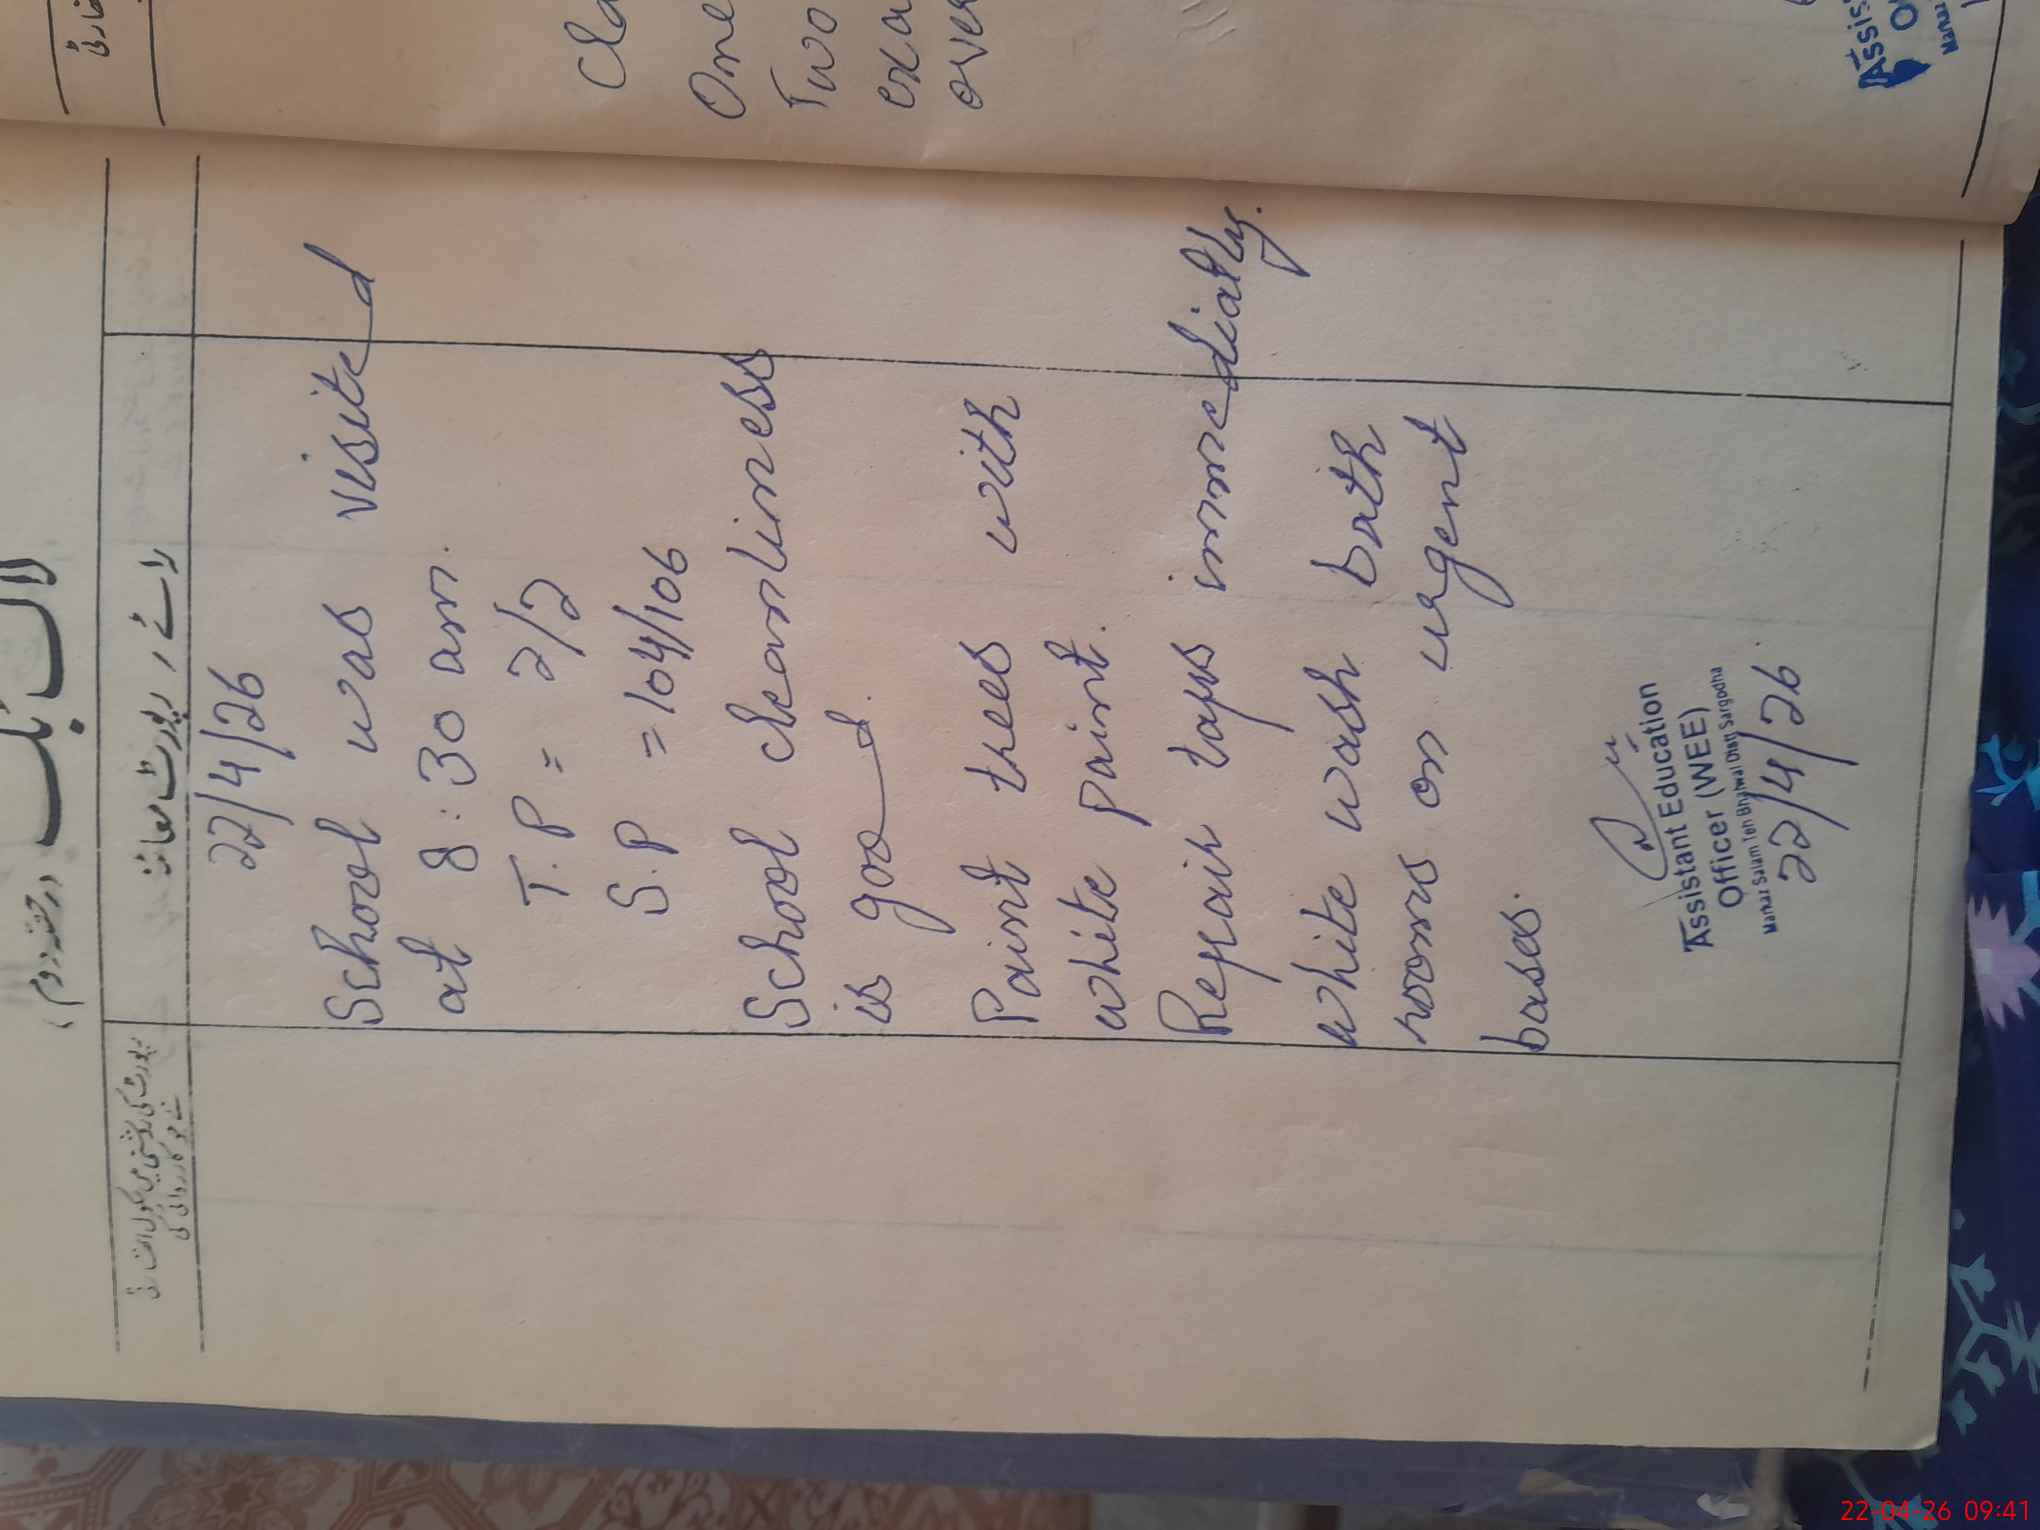 لاگ بُک (در حصہ دوم)
رائے / رپورٹ معائنہ
رپورٹ کی روشنی میں سکول انتھارٹی
نے جو کارروائی کی
22/4/26
School was visited
at 8:30 am.
T.P = 2/2
S.P = 104/106
School cleanliness
is good.
Paint trees with
white paint.
Repair taps immediatly.
white wash bath
rooms on urgent
bases.
Assistant Education
Officer (WEE)
Markaz Salam Teh Bhalwal Distt Sargodha
22/4/26
One
Two
exa
ove
Assis
O
Marka
22-04-26 09:41